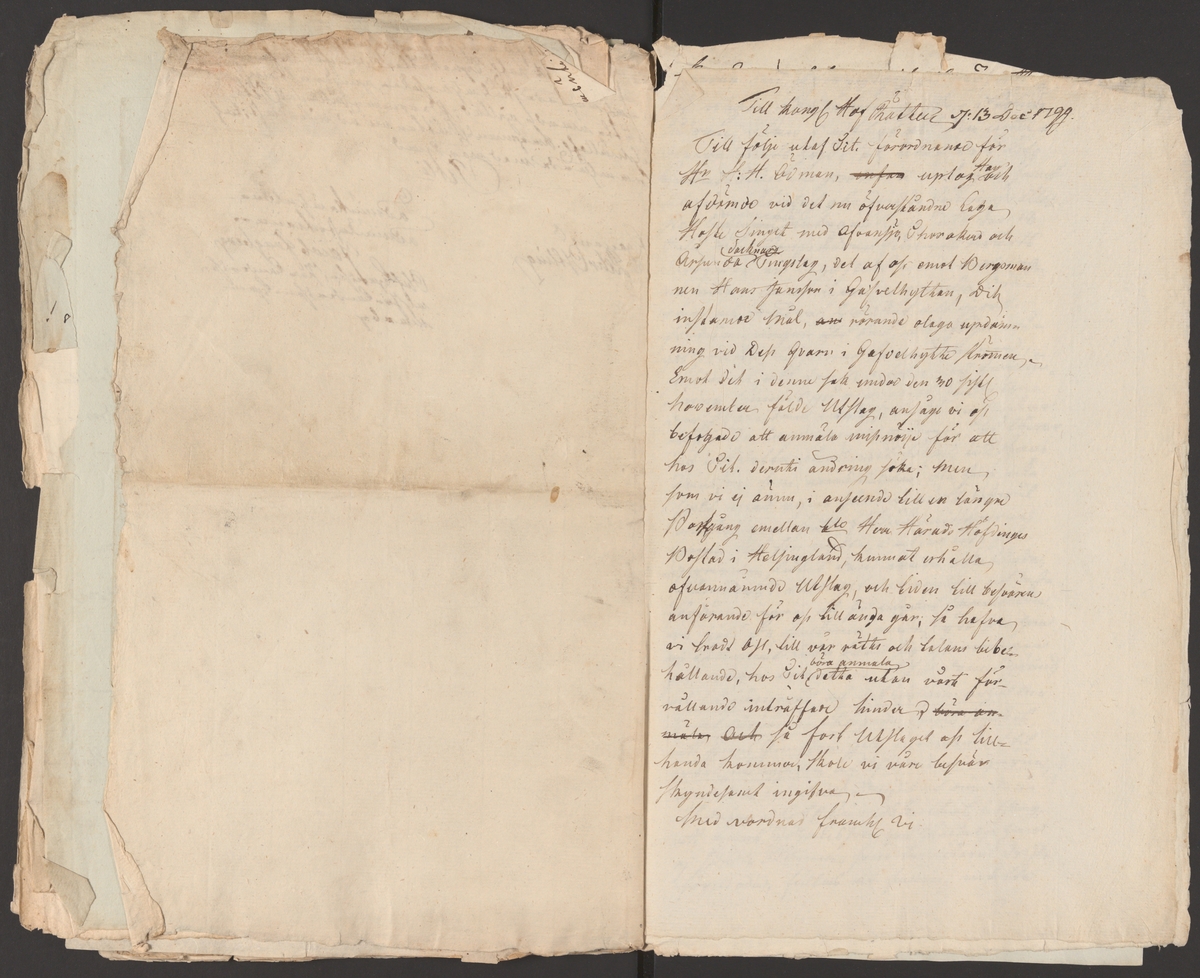 Till Kongl Hof Rätten d: 13 Dec 1799.
Till följe utaf Tit. förordnande för
Hr S: H. Ödman, uptog Han och
afdömde vid det nu öfverståndne Laga
Höste Tinget med Ofvansjö, Thorsåkers och
Årsunda Socknars Tingslag, det af oss emot Bergsman
nen Hans Jansson i Gafvelhyttan, dit
instämde Mål, rörande olaga updäm-
ning vid Dess Qvarn i Gafvelhytte Strömen,
Emot det i denne sak under den 30 sistl
November fälde Utslag, ansåge vi oss
befogade att anmäla missnöije för att
hos Tit. deruti ändring söka; Men
som vi ej ännu, i anseende till en längre
Postgång emellan Herr Härads Höfdinges
Bostad i Helsingland, kunnat erhålla
ofvannämnde Utslag, och tiden till besvären
anförande för oss till ända går; så hafva
vi trodt Oss, till vår rätts och talans bibe-
hållande, hos Tit böra anmäla detta utan vårt för-
vållande inträffade hinder, böra an-
mäla, Och så fort Utslaget oss till-
handa kommer, skole vi våre besvär
skyndesamt ingifva,
Med vördnad framhl vi